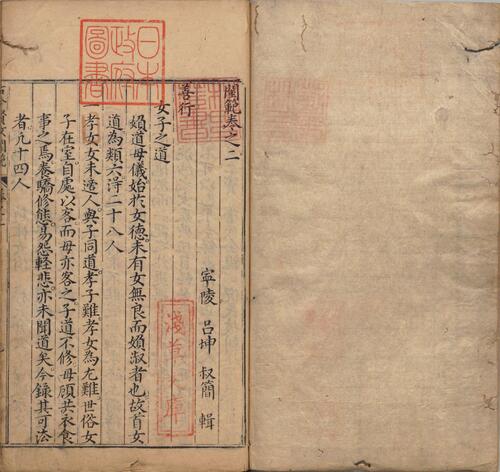 閨範卷之二
寧陵 呂坤 叔簡 輯
善行
女子之道
婦道母儀始於女德未有女無良而婦淑者也故首女
道為類六得二十八人
一孝女女未適人與子同道孝子難孝女為尤難世俗女
子在室自處以客而母亦客之子道不修母顧共衣食
事之焉養驕修態易怨輕悲亦未聞道矣今錄其可法
者凡十四人
日本
政府
圖書
淺草文庫